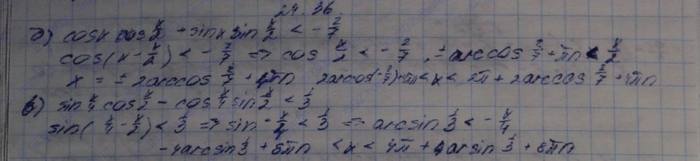 24.36
а) cosx cos x/2 + sinx sin x/2 < - 2/7
cos(x - x/2) < - 2/7 => cos x/2 < - 2/7, ± arccos 2/7 + πn < x/2
x = ± 2arccos 2/7 + 4πn 2arcos(-2/7)+4πn < x < 2π + 2arccos 2/7 + 4πn
б) sin x/4 cos x/2 - cos x/4 sin x/2 < 1/3
sin( x/4 - x/2 ) < 1/3 => sin - x/4 < 1/3 => arcsin 1/3 < - x/4
-4arcsin 1/3 + 8πn < x < 4π + 4arcsin 1/3 + 8πn